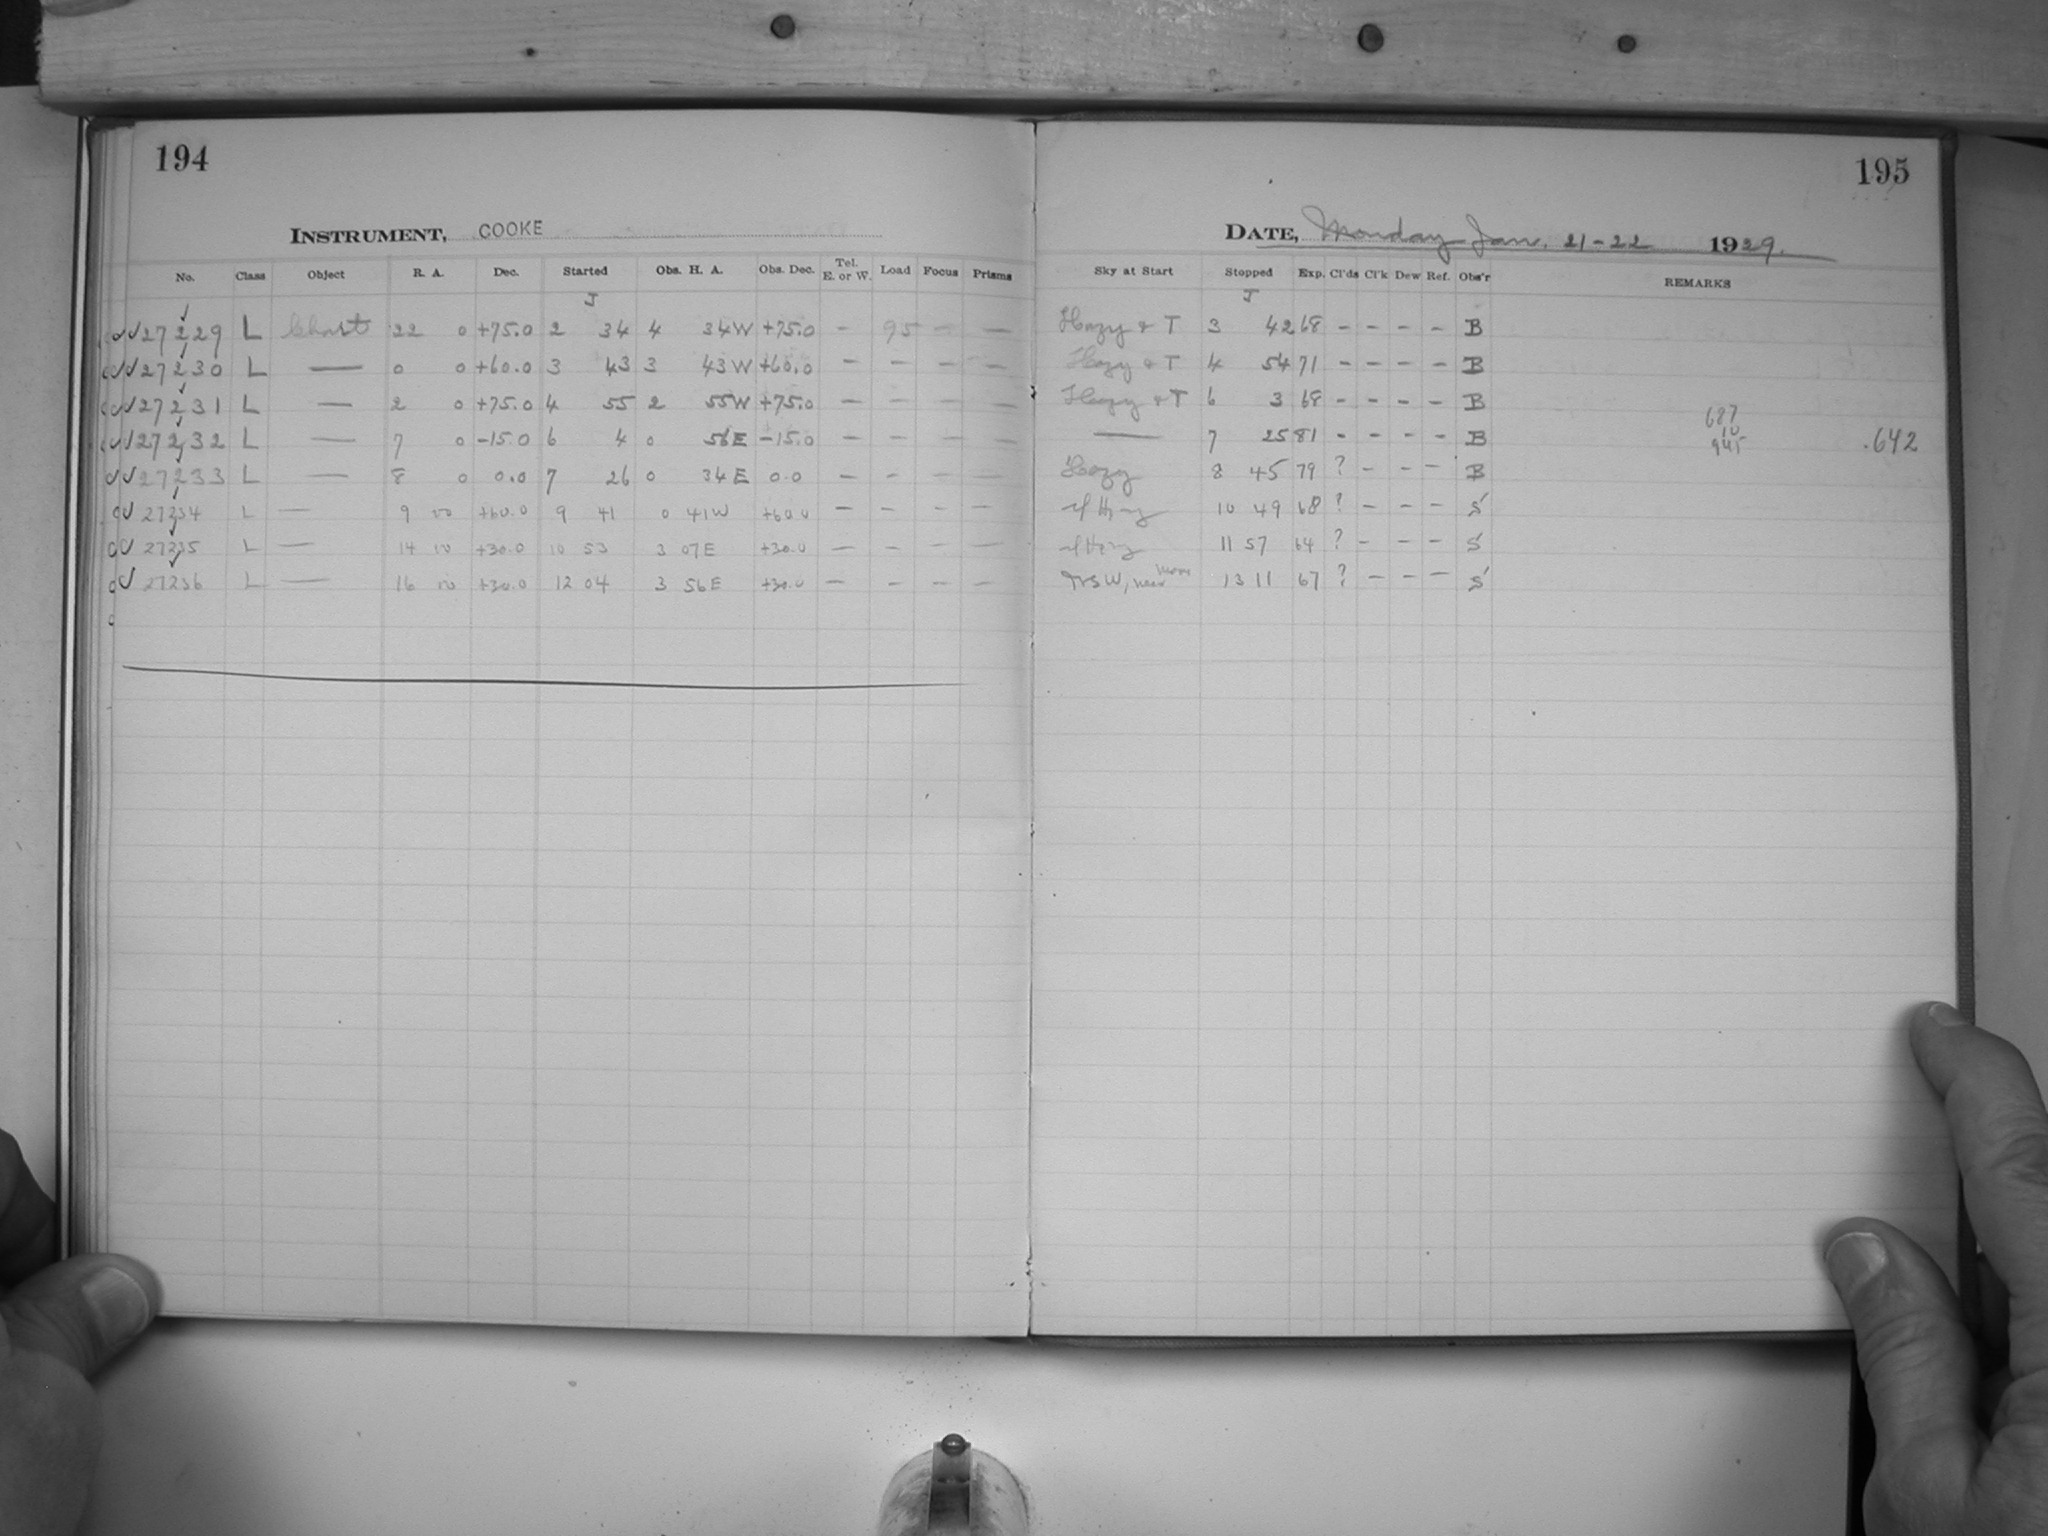 194
INSTRUMENT, COOKE
No. Class Object R. A. Dec. Started Obs. H. A. Obs. Dec. Tel. E. or W. Load Focus Prisms
J
27229 L Chart 22 0 +75.0 2 34 4 34W +75.0 - 95 - -
27230 L — 0 0 +60.0 3 43 3 43W +60.0 - - - -
27231 L — 2 0 +75.0 4 55 2 55W +75.0 - - - -
27232 L — 7 0 -15.0 6 4 0 56E -15.0 - - - -
27233 L — 8 0 0.0 7 26 0 34E 0.0 - - - -
27234 L — 9 00 +60.0 9 41 0 41W +60.0 - - - -
27235 L — 14 00 +30.0 10 53 3 07E +30.0 - - - -
27236 L — 16 00 +30.0 12 04 3 56E +30.0 - - - -
195
DATE, Monday Jan. 21-22 1929.
Sky at Start Stopped Exp. Cl'ds Cl'k Dew Ref. Obs'r REMARKS
J
Hazy & T 3 42 68 - - - - B
Hazy & T 4 54 71 - - - - B
Hazy & T 6 3 68 - - - - B
— 7 25 81 - - - - B
687
10
945
.642
Hazy 8 45 79 ? - - - B
Hazy 10 49 68 ? - - - S
Hazy 11 57 64 ? - - - S
near Moon 13 11 67 ? - - - S